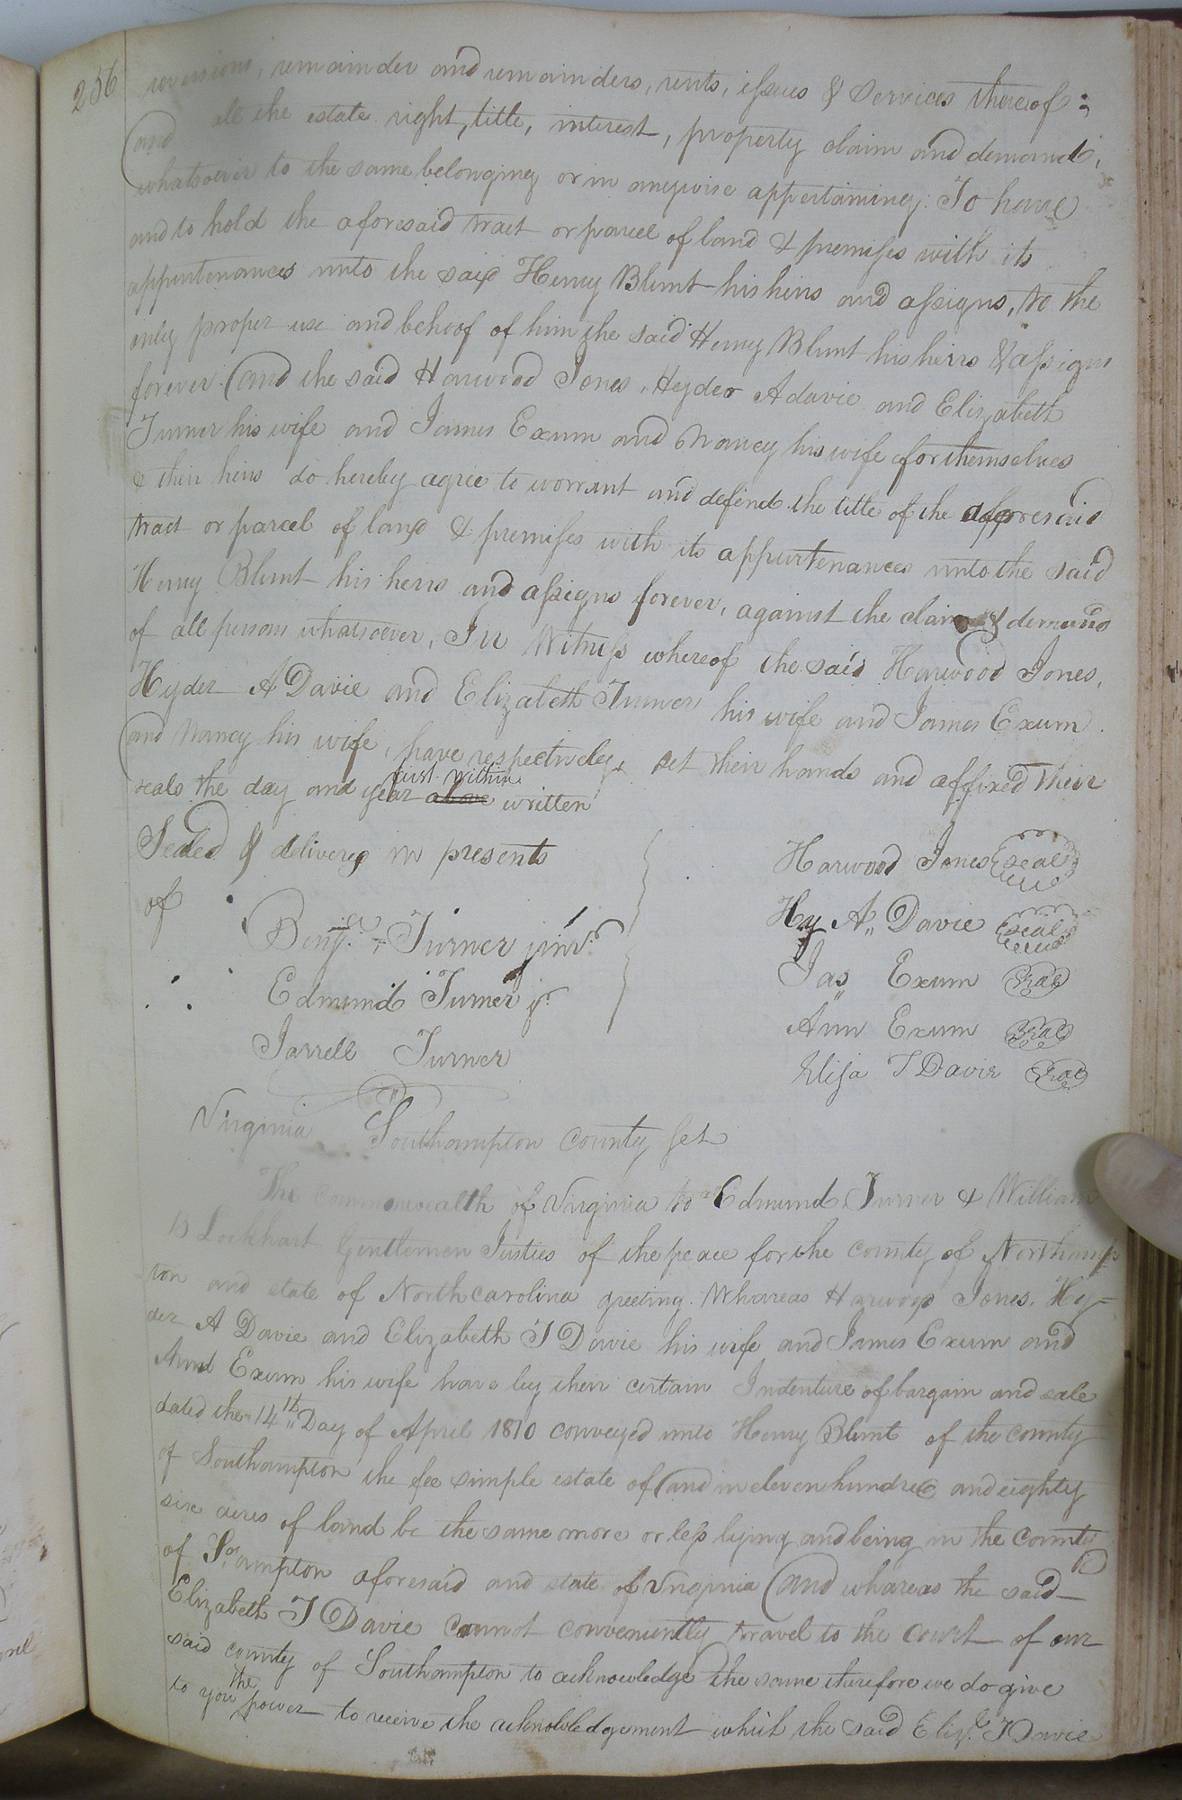 256
reversions, remainder and remainders, rents, issues & services thereof:
and all the estate right, title, interest, property claim and demand,
whatsoever to the same belonging or in anywise appertaining: To have
and to hold the aforesaid tract or parcel of land & premises with its
appurtenances unto the said Henry Blunt his heirs and assigns, to the
only proper use and behoof of him the said Henry Blunt his heirs & assigns
forever. And the said Harwood Jones, Hyder A davie and Elizabeth
Turner his wife and James Exum and Nancy his wife for themselves
& their heirs do hereby agree to worrant and defend the title of the aforesaid
tract or parcel of land & premises with its appurtenances unto the said
Henry Blunt his heirs and assigns forever, against the claim & demand
of all persons whatsoever, In Witness whereof the said Harwood Jones,
Hyder A Davie and Elizabeth Turner his wife and James Exum
and Nancy his wife, have respectively set their hands and affixed their
seals the day and year above just within written
Sealed & delivered in presents
of
Benj. Turner junr.
Edmund Turner jr.
Jarrell Turner
Harwood Jones seal
Hy A,, Davie seal
Jas Exum seal
Ann Exum seal
Eliza T Davie seal
Virginia Southampton county Sct
The commonwealth of Virginia to Edmund Turner & William
B Lockhart Gentlemen Justices of the peace for the county of Northamp
ton and state of Northcarolina greeting. Whareas Harwood Jones, Hy=
der A Davie and Elizabeth T Davie his wife and James Exum and
Exum his wife have by their certain Indenture of bargain and sale
dated the 14th,, Day of April 1810 conveyed unto Henry Blunt of the county
of Southampton the fee simple estate of and in eleven hundred and eighty
six acres of land be the same more or less lying and being in the county
of So,ampton aforesaid and state of Virginia And whareas the said
Elizabeth T Davie cannot conveniently travel to the court of our
said county of Southampton to acknowledge the same therefore we do give
to you the power to receive the acknowledgement which the said Eliz. T Davie